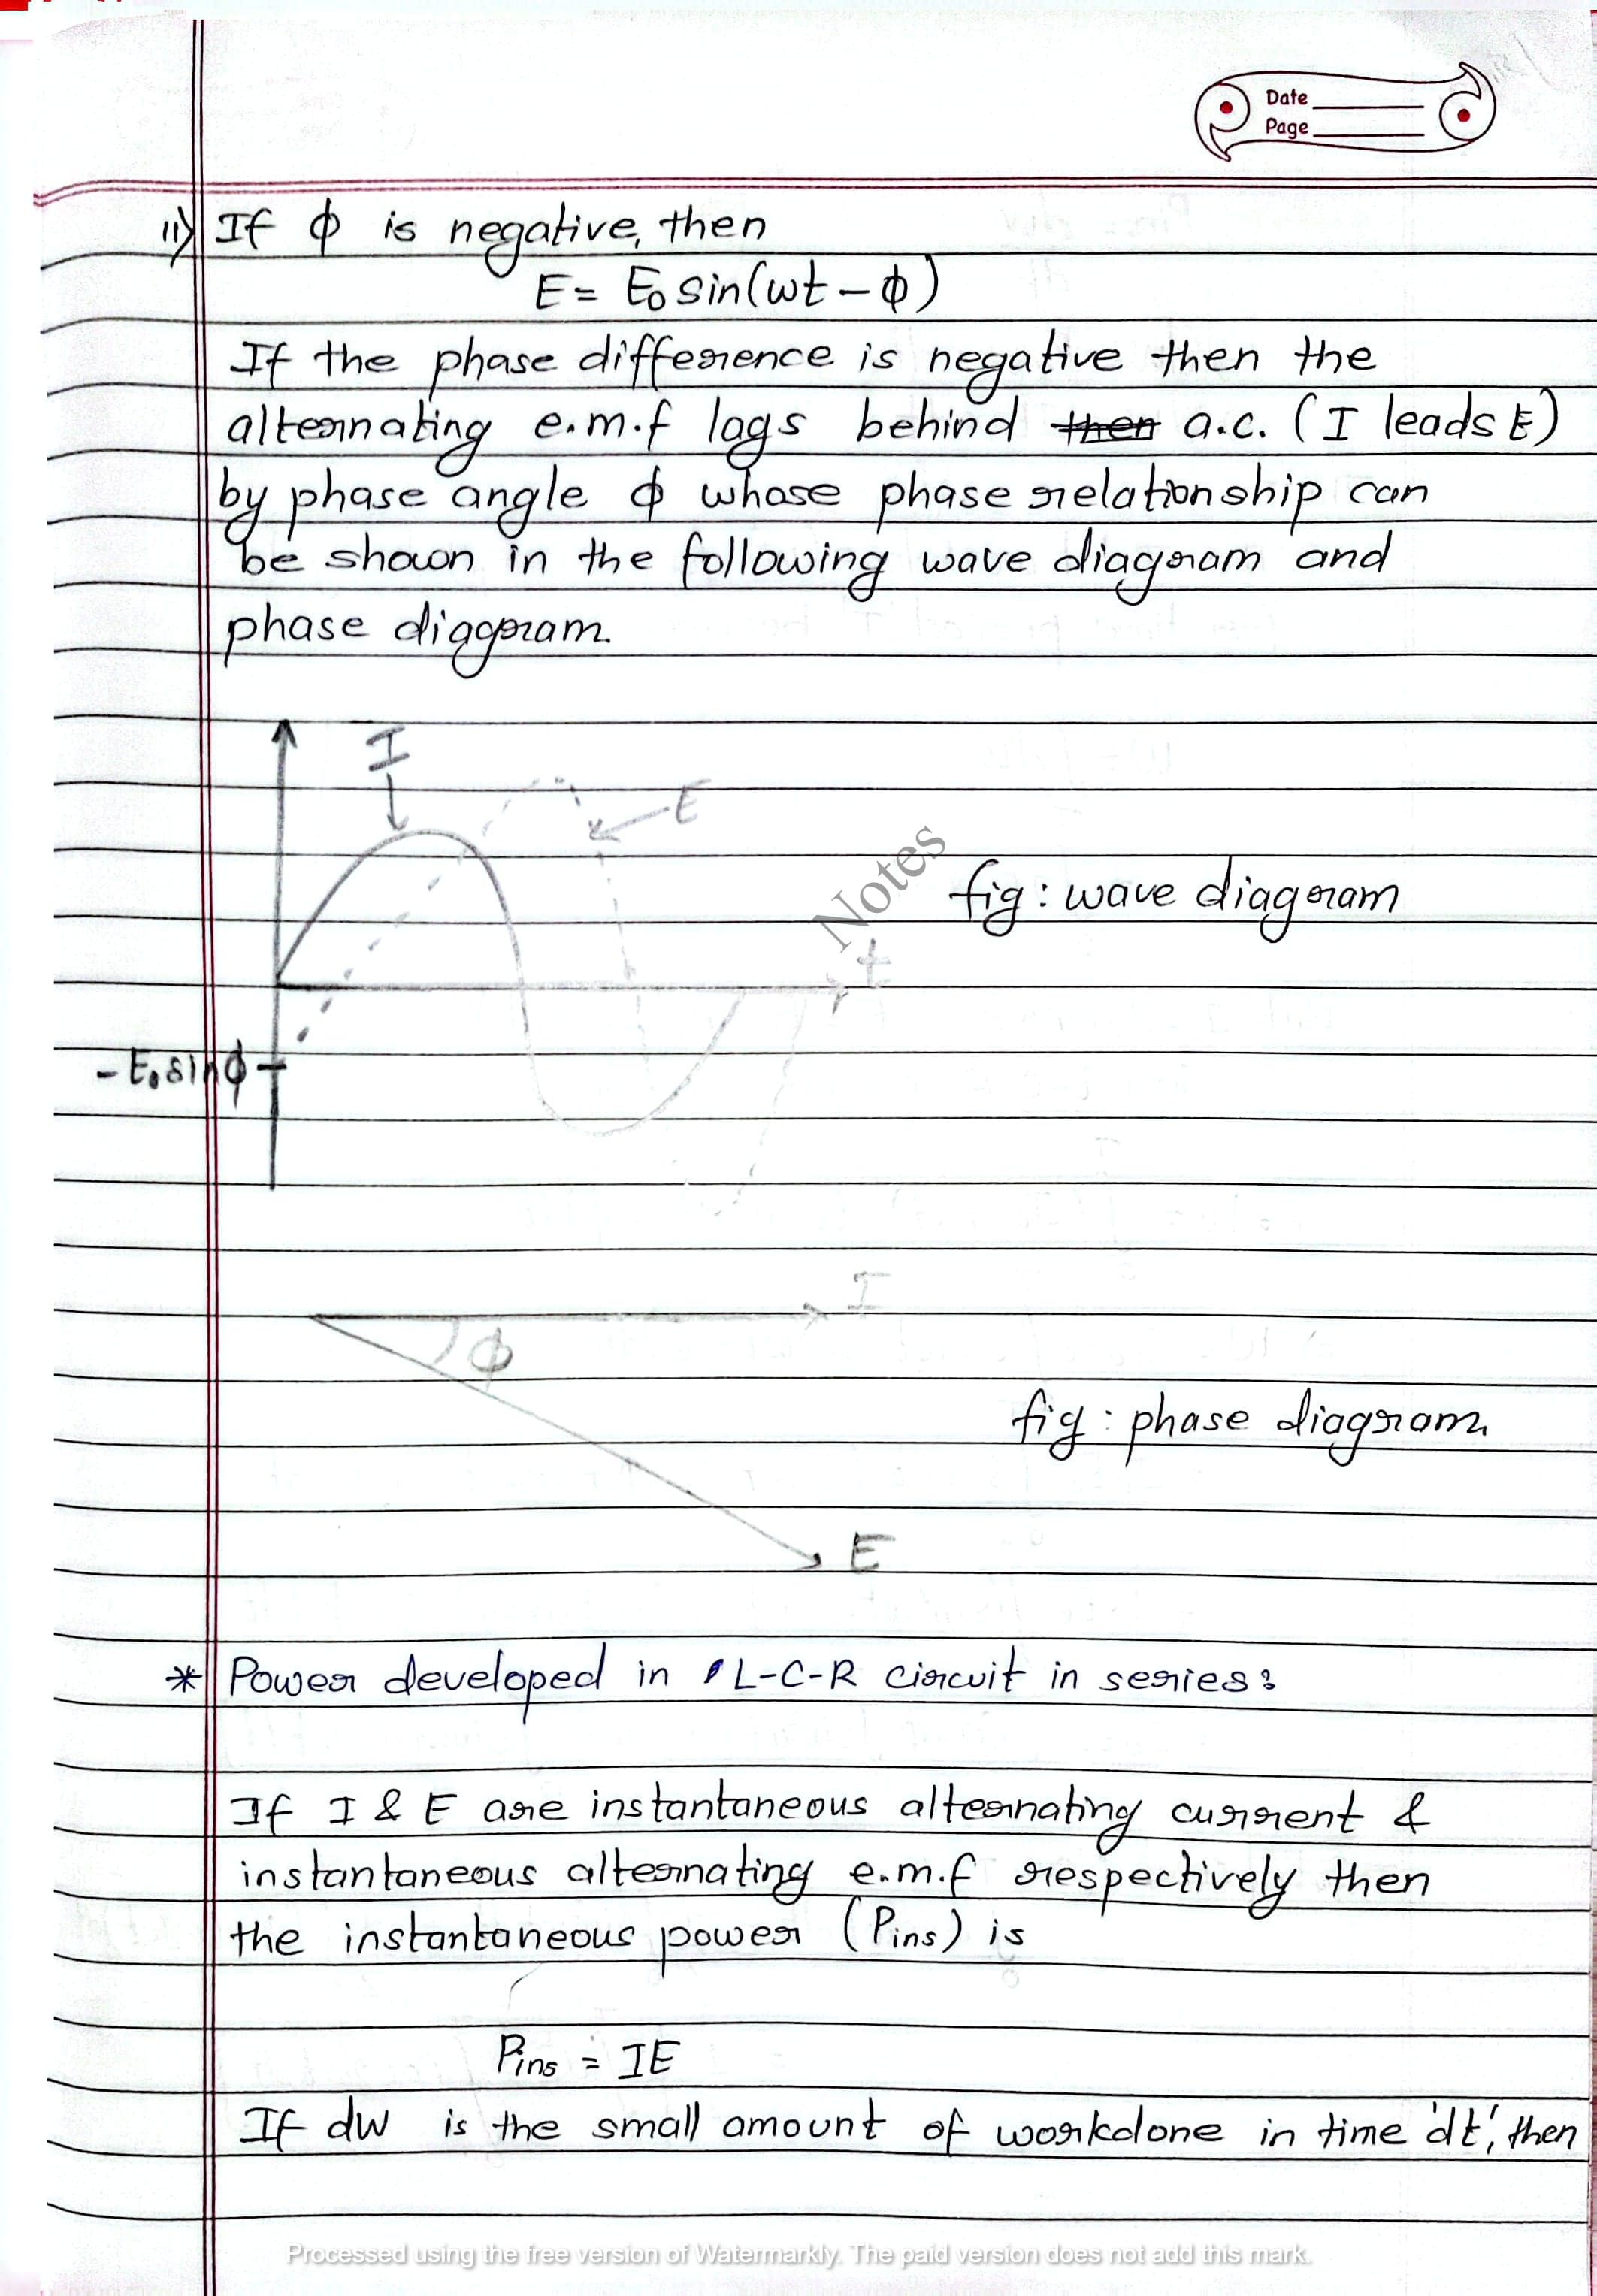 Date
Page
ii) If ϕ is negative, then
E = E₀ sin(ωt - ϕ)
If the phase difference is negative then the
alternating e.m.f lags behind then a.c. (I leads E)
by phase angle ϕ whose phase relationship can
be shown in the following wave diagram and
phase diagram.
I
E
Notes
fig : wave diagram
t
- E₀ sinϕ
I
ϕ
fig : phase diagram
E
* Power developed in L-C-R circuit in series:
If I & E are instantaneous alternating current &
instantaneous alternating e.m.f respectively then
the instantaneous power (Pins) is
Pins = IE
If dw is the small amount of workdone in time 'dt', then
Processed using the free version of Watermarkly. The paid version does not add this mark.